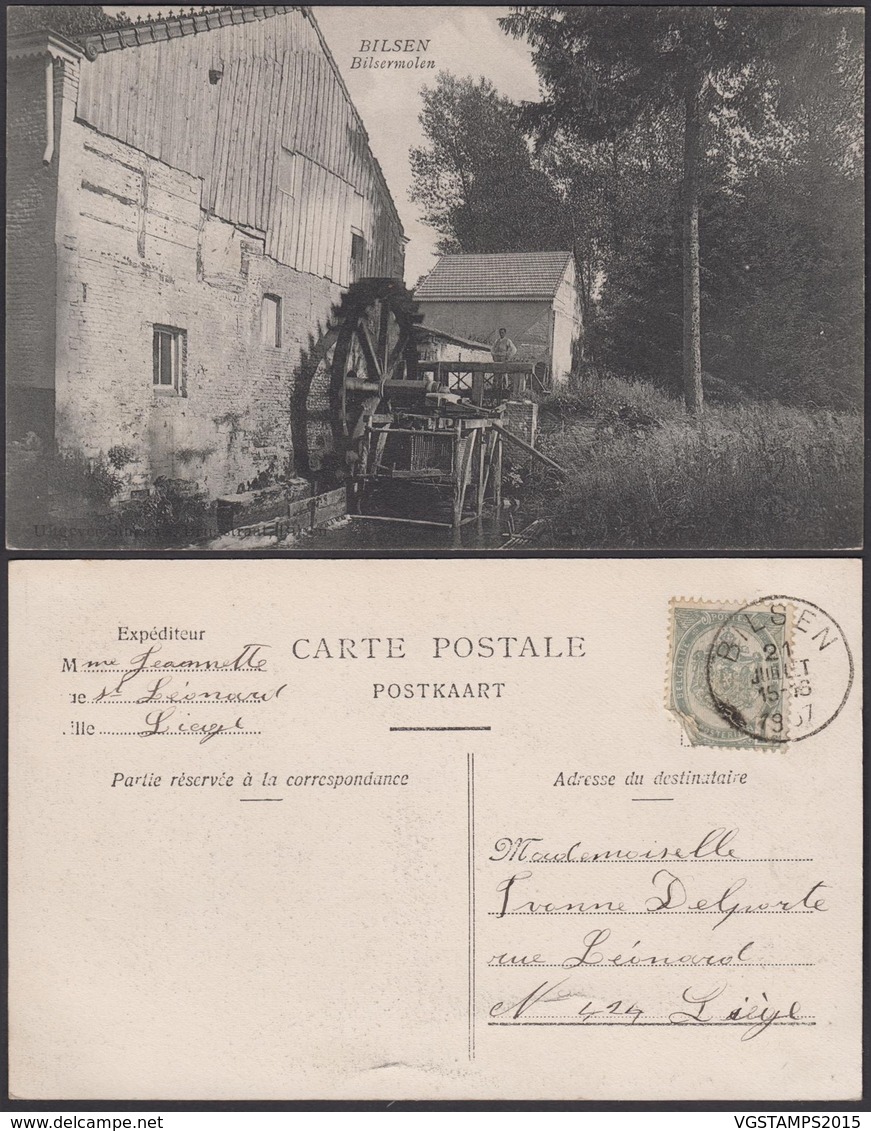 BILSEN
Bilsermolen
Expéditeur
Mme Jeannette
ue St Léonard
ille Liège
CARTE POSTALE
POSTKAART
BILSEN
21
JUILLET
15-16
1907
Partie réservée à la correspondance
Adresse du destinataire
Mademoiselle
Yvonne Delporte
rue Léonard
N 424 Liège
VGSTAMPS2015